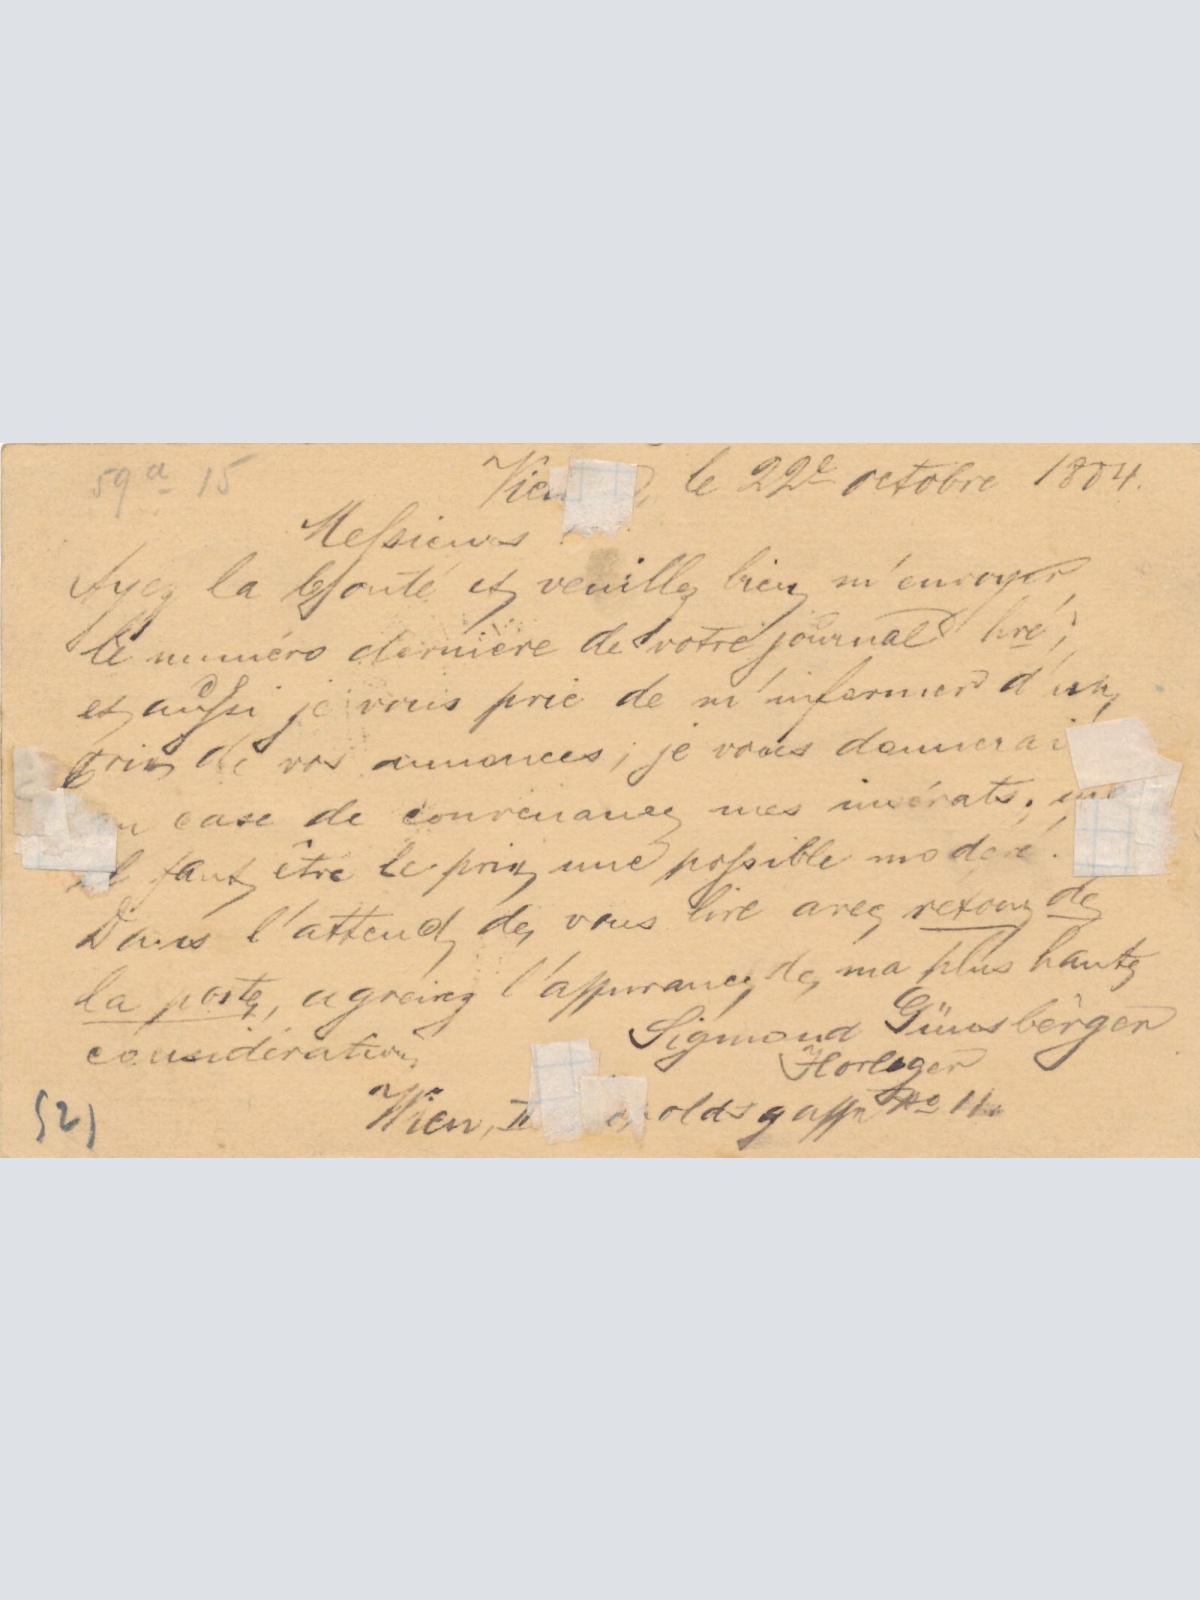 59a 15
Wien, le 22e octobre 1884.
Messieurs
Ayez la bonté et veuillez bien m'envoyer
le numéro dernière de votre journal
et aussi je vous prie de m'informer d'un
prix de vos annonces; je vous donnerai
en case de convenance mes insérats,
il faut être le prix une possible modéré.
Dans l'attend de vous lire avec retour de
la poste, agréez l'assurance de ma plus haute
considération
Sigmond Günsberger
Horloger
Wien, II oldsgasse No 11.
52)